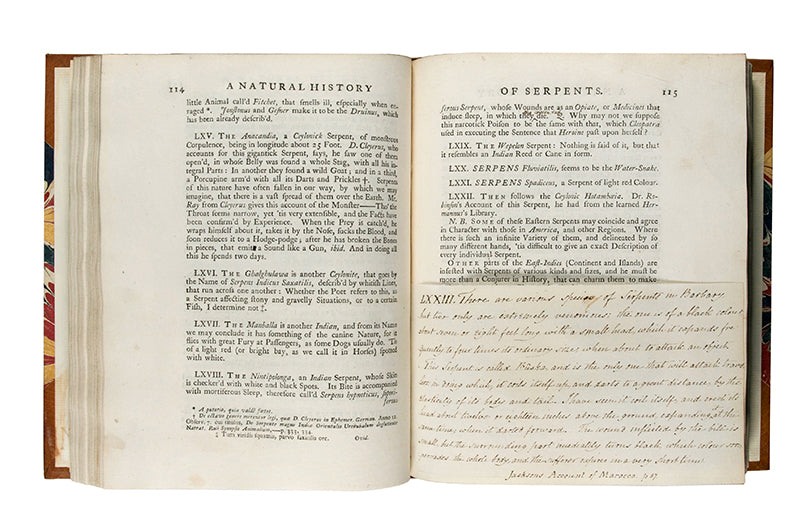 114 A NATURAL HISTORY
little Animal call'd Fitchet, that smells ill, especially when en-
raged *. Jonstonus and Gesner make it to be the Druinus, which
has been already describ'd.
LXV. THE Anacandia, a Ceylonick Serpent, of monstrous
Corpulence, being in longitude about 25 Foot. D. Cleyerus, who
accounts for this gigantick Serpent, says, he saw one of them
open'd, in whose Belly was found a whole Stag, with all his in-
tegral Parts: In another they found a wild Goat; and in a third,
a Porcupine arm'd with all its Darts and Prickles †. Serpents
of this nature have often fallen in our way, by which we may
imagine, that there is a vast spread of them over the Earth. Mr.
Ray from Cleyerus gives this account of the Monster—Tho' the
Throat seems narrow, yet 'tis very extensible, and the Facts have
been confirm'd by Experience. When the Prey is catch'd, he
wraps himself about it, takes it by the Nose, sucks the Blood, and
soon reduces it to a Hodge-podge; after he has broken the Bones
in pieces, that emits a Sound like a Gun, ibid. And in doing all
this he spends two days.
LXVI. THE Ghalghulawa is another Ceylonite, that goes by
the Name of Serpens Indicus Saxatilis, describ'd by whitish Lines,
that run across one another: Whether the Poet refers to this, as
a Serpent affecting stony and gravelly Situations, or to a certain
Fish, I determine not ‡.
LXVII. THE Manballa is another Indian, and from its Name
we may conclude it has something of the canine Nature, for it
flies with great Fury at Passengers, as some Dogs usually do. 'Tis
of a light red (or bright bay, as we call it in Horses) spotted
with white.
LXVIII. THE Nintipolonga, an Indian Serpent, whose Skin
is checker'd with white and black Spots. Its Bite is accompanied
with mortiferous Sleep, therefore call'd Serpens hypnoticus, sopori-
ferous
* A putore, quia valdè fœtet.
† De aliatis genere
Observ. 7. De Serpente magno Indiæ Orientalis Urobubalum deglutiente
Narrat. Raii Synopsis Animalium,—p. 333, 334.
‡ parvo saxatilis ore. Ovid.
OF SERPENTS. 125
ferous Serpent, whose Wounds are as an Opiate, or Medicines that
induce sleep, in which they die. Q. Why may not we suppose
this narcotick Poison to be the same with that, which Cleopatra
used in executing the Sentence that Heroine past upon herself?
LXIX. THE Wepelon Serpent: Nothing is said of it, but that
it resembles an Indian Reed or Cane in form.
LXX. SERPENS Fluviatilis, seems to be the Water-Snake.
LXXI. SERPENS Spadiceus, a Serpent of light red Colour.
LXXII. THEN follows the Ceylonic Hotambœia. Dr. Ro-
binson's Account of this Serpent, he had from the learned Her-
mannus's Library.
N. B. SOME of these Eastern Serpents may coincide and agree
in Character with those in America, and other Regions. Where
there is such an infinite Variety of them, and delineated by so
many different hands, 'tis difficult to give an exact Description of
every individual Serpent.
OTHER parts of the East-Indies (Continent and Islands) are
infested with Serpents of various kinds and sizes, and he must be
more than a Conjurer in History, that can charm them to make
LXXIII. There are various species of Serpents in Barbary
but two only are extremely venomous: the one is of a black colour
about seven or eight feet long with a small head, which it expands fre
quently to four times its ordinary size; when about to attack an object
This Serpent is called Búska, and is the only one that will attack travel
lers in doing which, it coils itself up, and darts to a great distance, by the
elasticity of its body and tail. I have seen it coil itself, and erect its
head about twelve or eighteen inches above the ground, expanding at the
same time, when it darted forward. The wound inflicted by the bite is
small, but the surrounding part immediately turns black, which colour soon
pervades the whole body, and the sufferer expires in a very short time.
Jackson's Account of Marocco. p 67